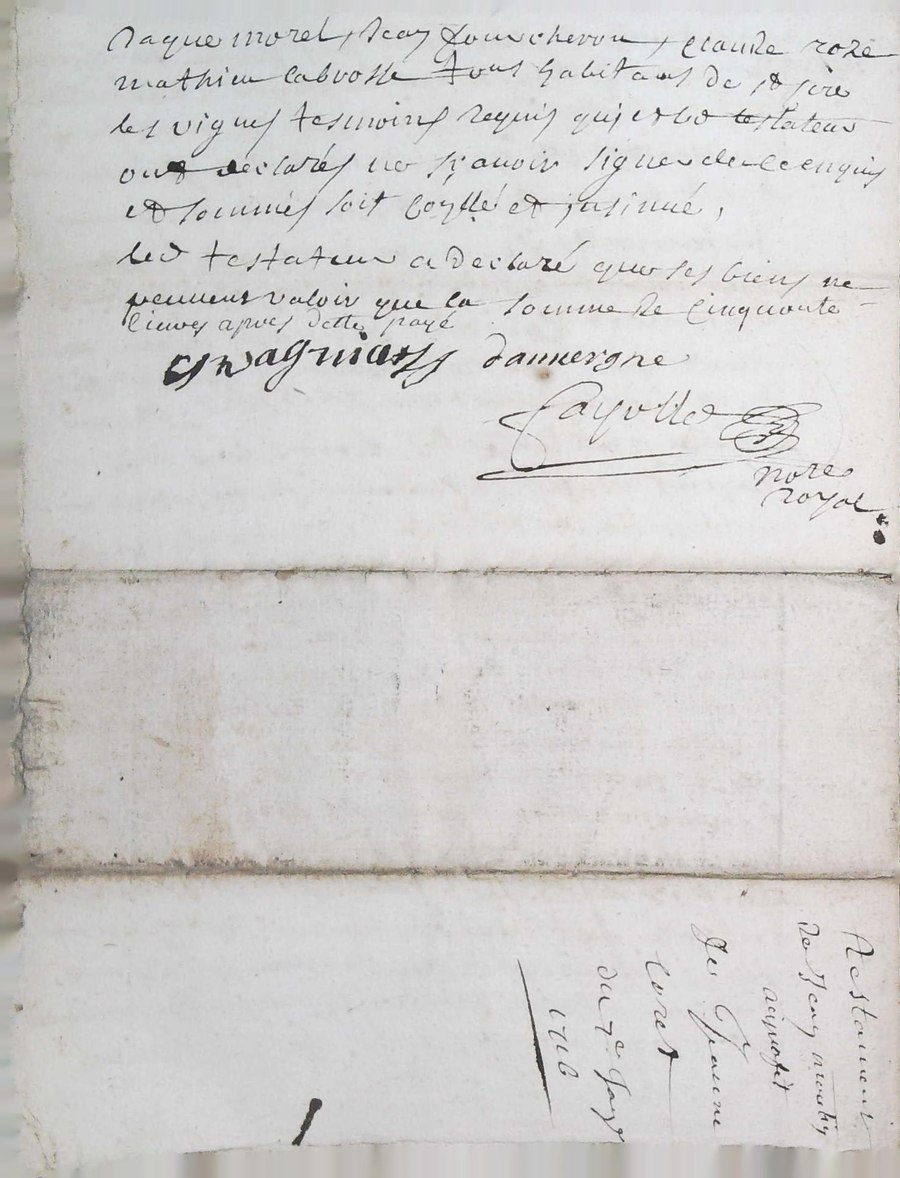 Jaque morel, Jean fourcheron, claude roze
mathieu Labrosse tous habitans de st pire
les vignes tesmoins requis qui et led testateur
ont declarés ne sçavoir signer de ce enquis
et sommés soit coyllé et jnsinué,
led testateur a declaré que ses biens ne
peuvent valoir que la somme de Cinquante
livres apres dette payé
dauuergne
fayolle
nore
royal
Testament
de Jean
auprofit
de Jeanne
loret
du 7e
1716